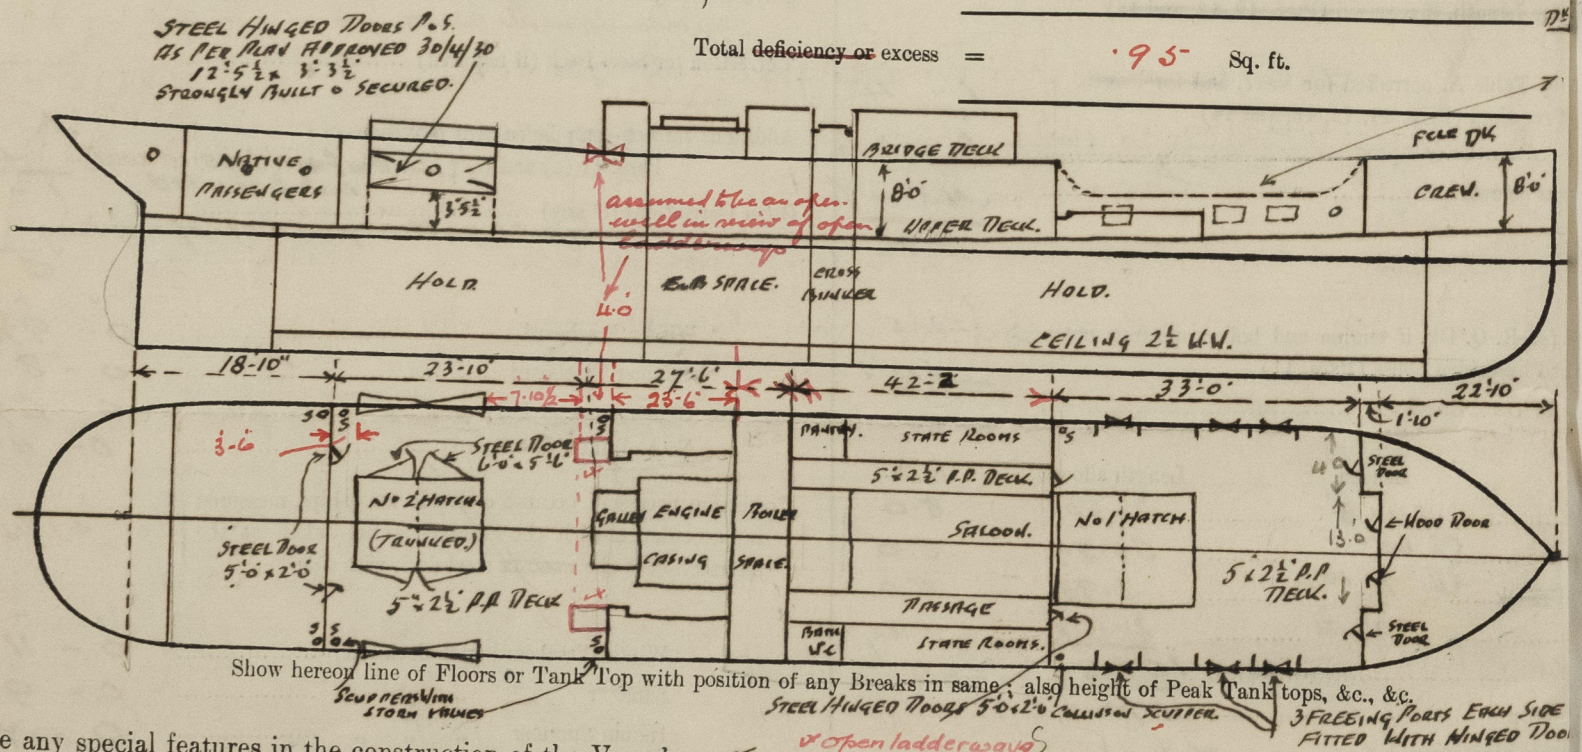 STEEL HINGED DOORS P.S.
AS PER PLAN APPROVED 30/4/30
12'-5½" x 3'-3½"
STRONGLY BUILT & SECURED.
Total deficiency or excess = .95 Sq. ft.
DK
FCLE DK
NATIVE
PASSENGERS
3'5½"
BRIDGE DECK
8'0"
UPPER DECK.
CREW.
8'0"
assumed to be an open
well in view of open
ladderways
HOLD.
E & B SPACE.
CROSS
BUNKER
HOLD.
4.0
CEILING 2½" W.W.
18'-10"
23'-10"
27'-6"
42-2
33'-0"
22'-10"
7-10½
23-6
1'-10"
3-6
S
S
S
S
STEEL DOOR
6'0" x 5'6"
No 2 HATCH.
(TRUNKED.)
STEEL DOOR
5'-0" x 2'-0"
5" x 2½" P.P. DECK
GALLEY
ENGINE
CASING
BOILER
SPACE.
PANTRY.
STATE ROOMS
5" x 2½" P.P. DECK.
SALOON.
PASSAGE
BATH
WC
STATE ROOMS.
No 1 HATCH
4.0
13.0
STEEL
DOOR
WOOD DOOR
5 x 2½" P.P
DECK.
STEEL
DOOR
Show hereon line of Floors or Tank Top with position of any Breaks in same; also height of Peak Tank tops, &c., &c.
SCUPPERS WITH
STORM VALVES
STEEL HINGED DOORS 5'0" x 2'0"
COMMON SCUPPER.
3 FREEING PORTS EACH SIDE
FITTED WITH HINGED DOO
e any special features in the construction of the V
open ladderways